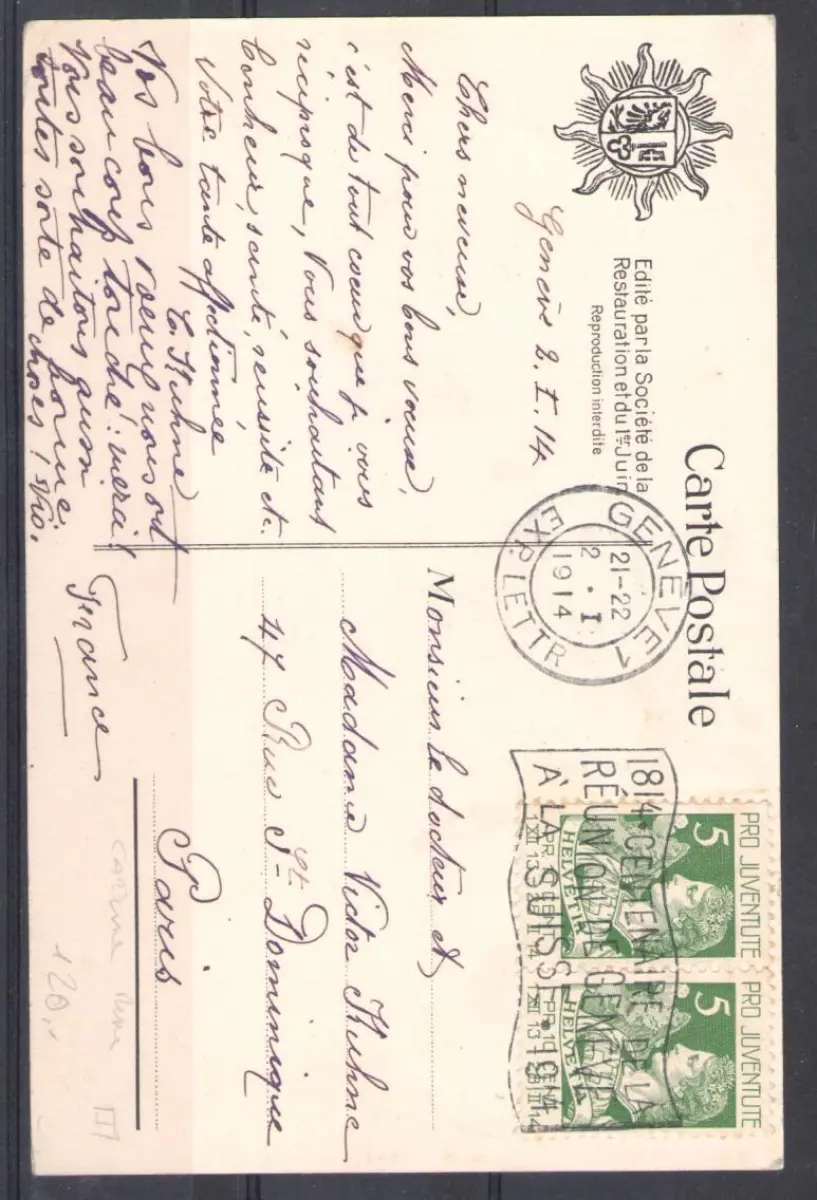 Carte Postale
Edité par la Société de la
Restauration et du 1er Juin
Reproduction interdite
GENÈVE 1
21-22
2 . I
1914
EXP. LETTR
1814 • CENTENAIRE DE LA
RÉUNION DE GENÈVE
À LA SUISSE • 1914
PRO JUVENTUTE
5
HELVETIA
PRO JUVENTUTE
5
HELVETIA
Genève 2.I.14
Chers neveux,
Merci pour vos bons voeux,
c'est de tout coeur que je vous
réciproque, Vous souhaitant
bonheur, santé, réussite etc.
Votre tante affectionnée
E. Kuhne
Vos bons voeux nous ont
beaucoup touché! merci!
Vous souhaitons aussi
toutes sorte de bonne
choses!
Monsieur le docteur et
Madame Victor Kuhne
47 Rue St. Dominique
Paris
France
120.-
III